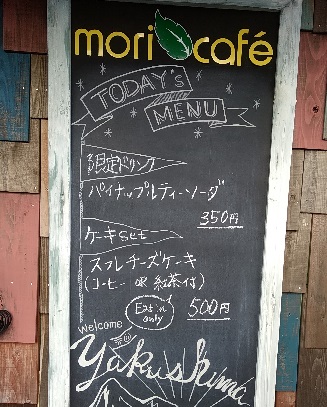 mori café
TODAY'S
MENU
限定ドリンク
パイナップルティーソーダ
350円
ケーキset
スフレチーズケーキ
(コーヒー OR 紅茶付)
Eat in
only
500円
welcome
Yakushima